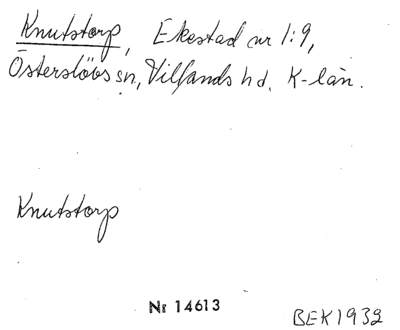 Knutstorp, Ekestad nr 1:9,
Österslövs sn, Villands hd. K-län.
Knutstorp
Nr 14613
BEK 1932